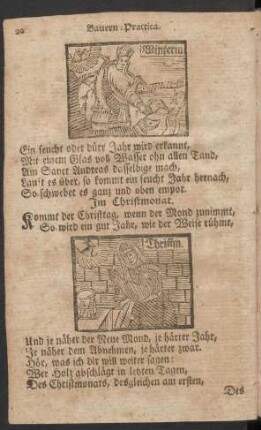 20
Bauern-Practica.
Winterm
Ein feucht oder dürr Jahr wird erkannt,
Mit einem Glas voll Wasser ohn allen Tand,
Am Sanct Andreas dasselbige mach,
Lauft es über, so kommt ein feucht Jahr hernach,
So schwebet es ganz und oben empor.
Im Christmonat.
Kommt der Christtag, wenn der Mond zunimmt,
So wird ein gut Jahr, wie der Weise rühmt,
Christm.
Und je näher der Neue Mond, je härter Jahr,
Je näher dem Abnehmen, je härter zwar.
Hör, was ich dir will weiter sagen:
Wer Holz abschlägt in letzten Tagen,
Des Christmonats, desgleichen am ersten,
Des